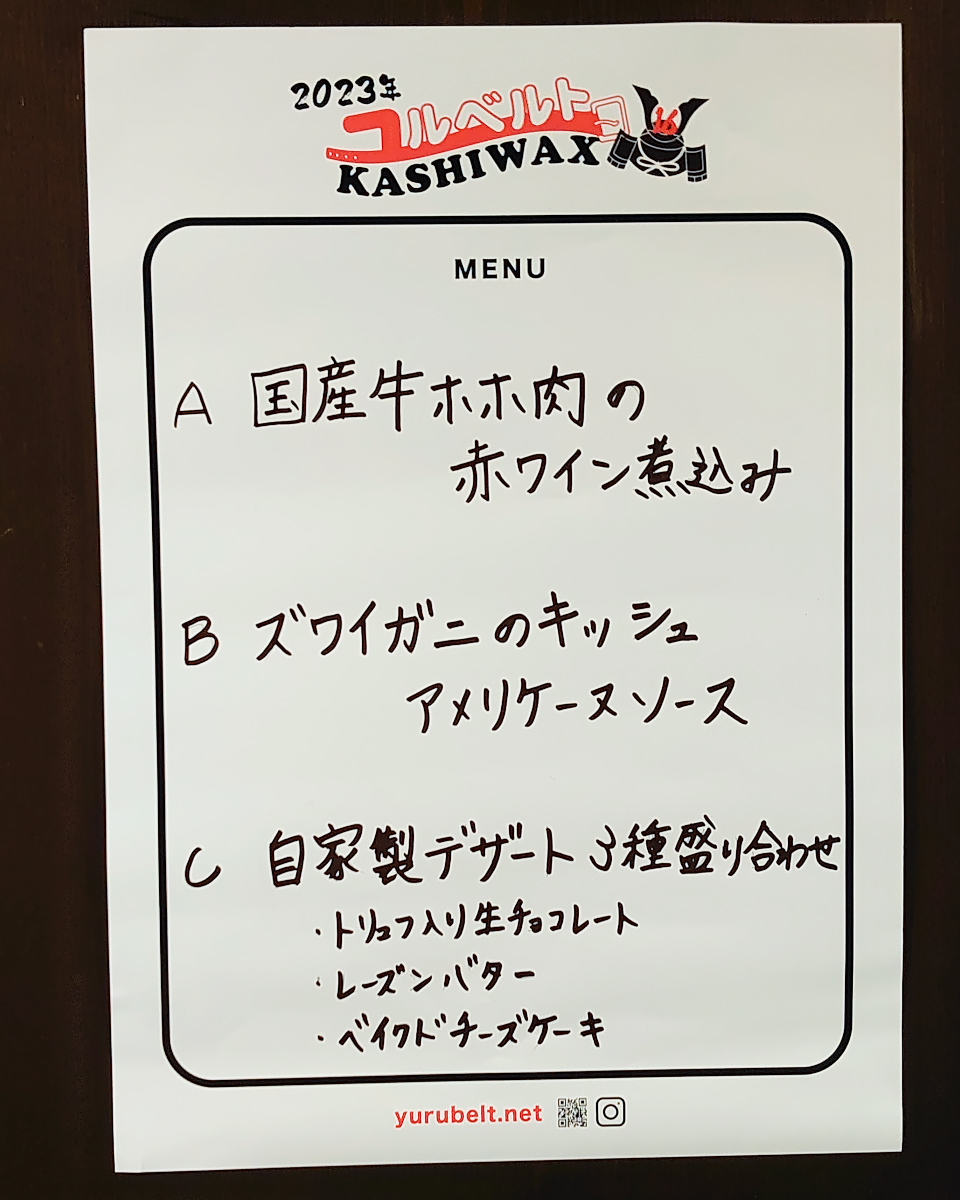 2023年
ユルベルトヨ
KASHIWAX
16
MENU
A 国産牛ホホ肉の
赤ワイン煮込み
B ズワイガニのキッシュ
アメリケーヌソース
C 自家製デザート3種盛り合わせ
・トリュフ入り生チョコレート
・レーズンバター
・ベイクドチーズケーキ
yurubelt.net